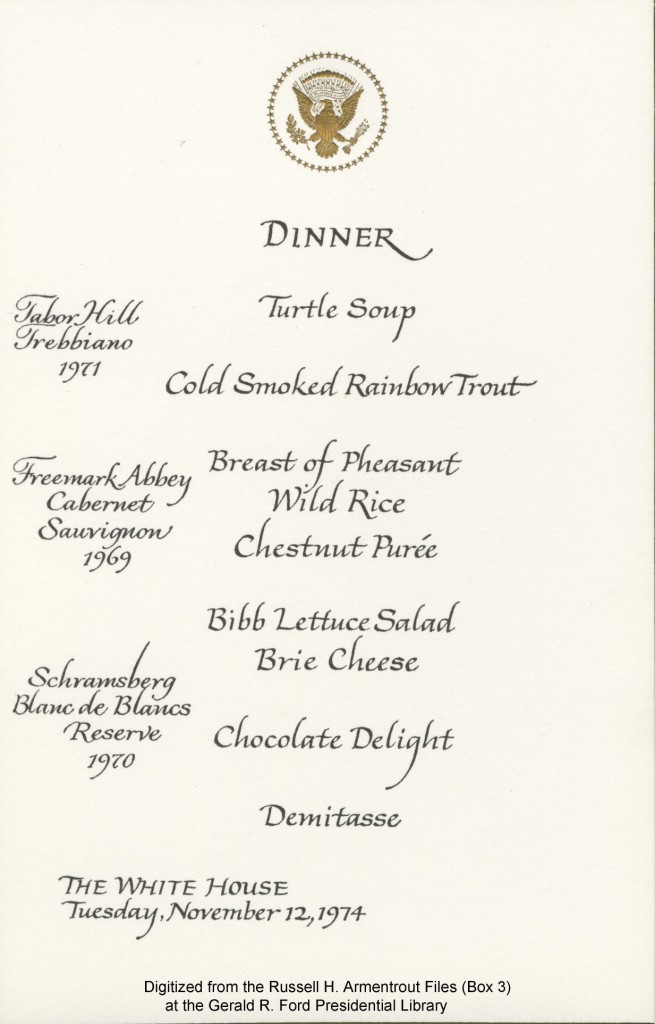 DINNER
Tabor Hill
Trebbiano
1971
Turtle Soup
Cold Smoked Rainbow Trout
Freemark Abbey
Cabernet
Sauvignon
1969
Breast of Pheasant
Wild Rice
Chestnut Purée
Bibb Lettuce Salad
Brie Cheese
Schramsberg
Blanc de Blancs
Reserve
1970
Chocolate Delight
Demitasse
THE WHITE HOUSE
Tuesday, November 12, 1974
Digitized from the Russell H. Armentrout Files (Box 3)
at the Gerald R. Ford Presidential Library